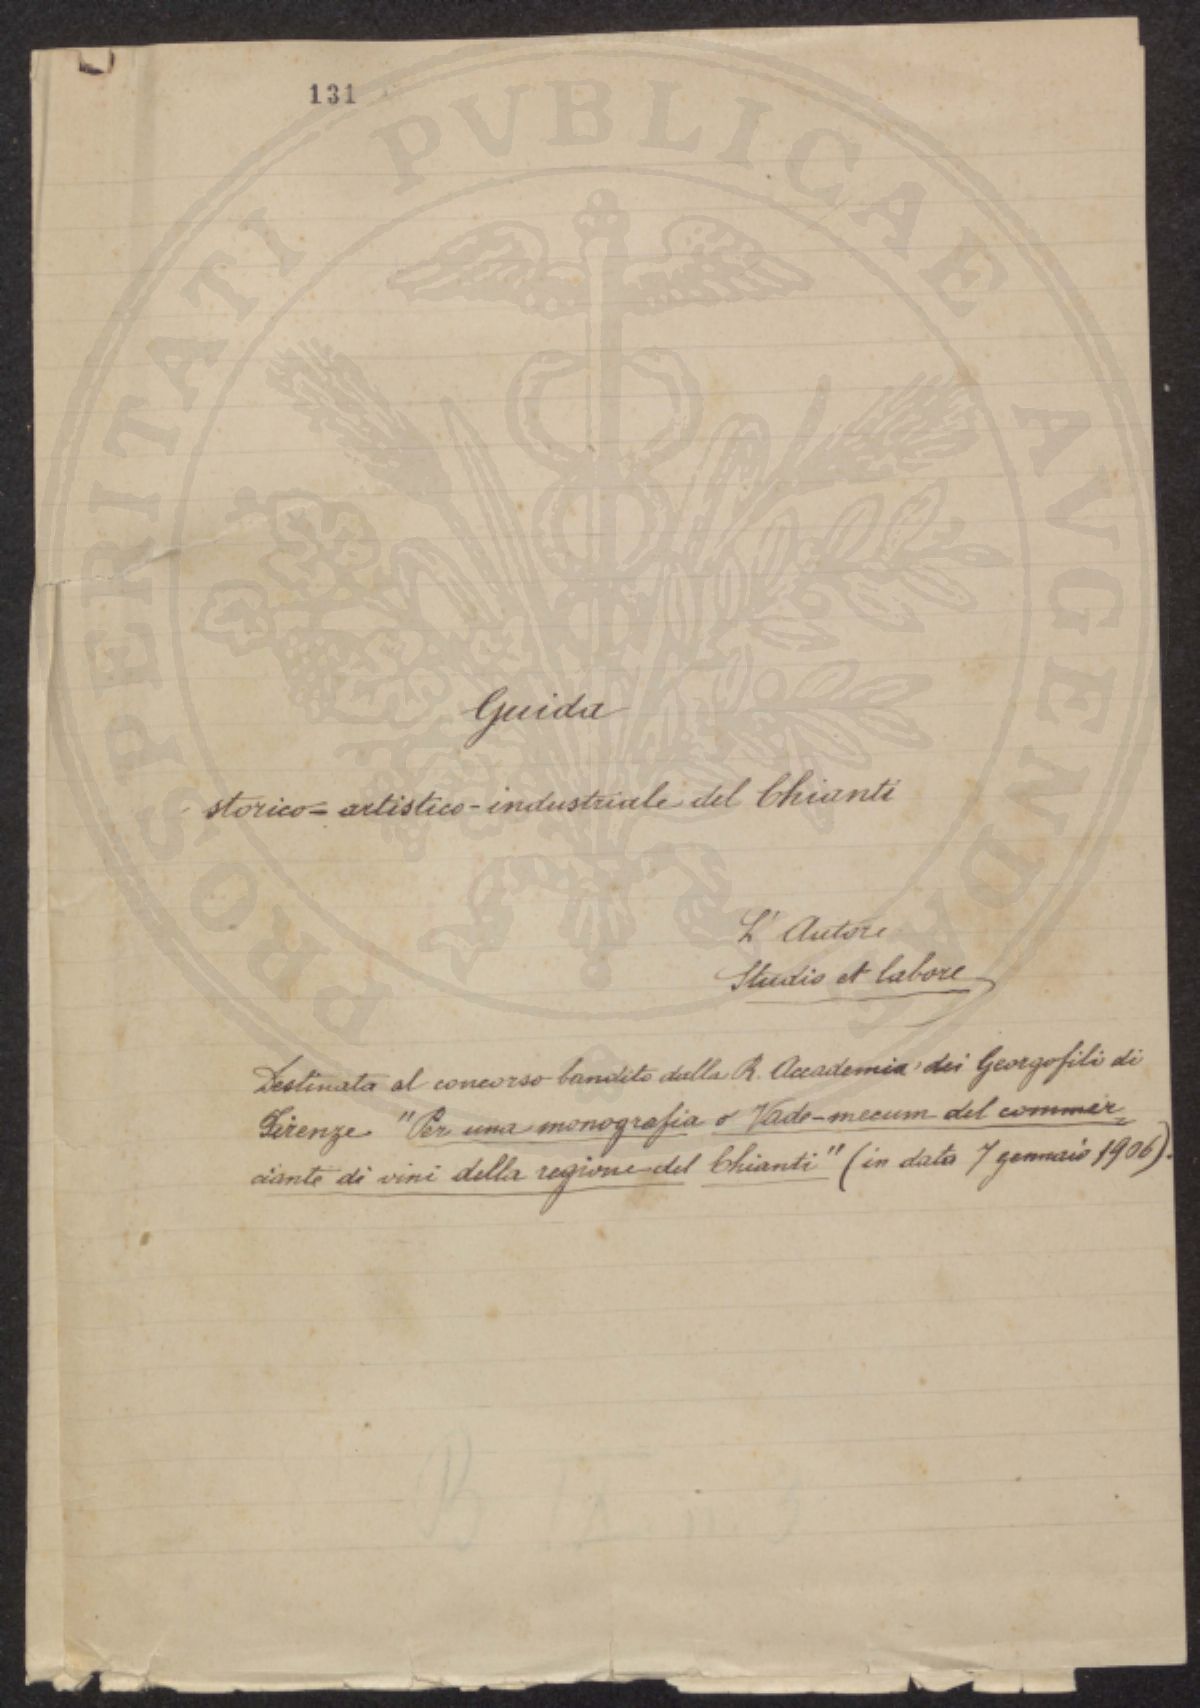 131
PROSPERITATI PVBLICAE AVGENDAE
Guida
storico=artistico-industriale del Chianti
L'Autore
Studio et labore
Destinata al concorso bandito dalla R. Accademia dei Georgofili di
Firenze "Per una monografia o Vade-mecum del commer=
ciante di vini della regione del Chianti" (in data 7 gennaio 1906).
B IX n. 3